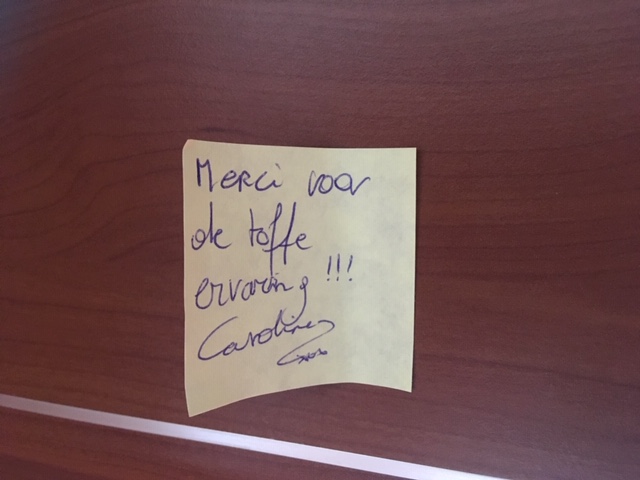 Merci voor
de toffe
ervaring !!!
Caroline
xoxo